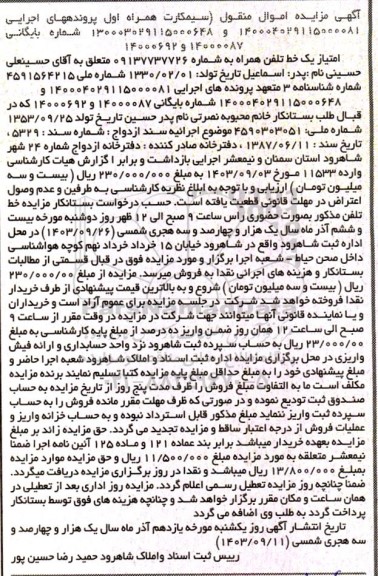 آگهی مزایده اموال منقول (سیمکارت همراه اول پروندههای اجرایی
۱۴۰۰۰۴۰۲۹۱۱۵۰۰۰۰۸۱ و ۱۴۰۰۰۴۰۲۹۱۱۵۰۰۰۶۴۸ شماره بایگانی
۱۴۰۰۰۰۸۷ و ۱۴۰۰۰۶۹۲
امتیاز یک خط تلفن همراه به شماره ۰۹۱۳۷۷۳۷۷۲۶ متعلق به آقای حسینعلی
حسینی نام پدر: اسماعیل تاریخ تولد: ۱۳۳۰/۰۲/۰۱ شماره ملی ۴۵۹۱۵۶۴۲۱۵
شماره شناسنامه ۳ متعهد پرونده های اجرایی ۱۴۰۰۰۴۰۲۹۱۱۵۰۰۰۰۸۱ و
۱۴۰۰۰۴۰۲۹۱۱۵۰۰۰۶۴۸ شماره بایگانی ۱۴۰۰۰۰۸۷ و ۱۴۰۰۰۶۹۲ که در
قبال طلب بستانکار خانم محبوبه نصرتی نام پدر حسین تاریخ تولد ۱۳۵۳/۰۹/۲۵
شماره ملی: ۴۵۹۰۳۰۳۰۵۱ موضوع اجرائیه سند ازدواج : شماره سند : ۵۳۲۹ ،
تاریخ سند : ۱۳۸۷/۰۶/۱۱ ، دفترخانه صادر کننده : دفترخانه ازدواج شماره ۲۴ شهر
شاهرود استان سمنان و نیمعشر اجرایی بازداشت و برابر ا گزارش هیات کارشناسی
وارده ۱۱۵۳۳ مورخ ۱۴۰۳/۰۹/۰۳ به مبلغ ۲۳۰/۰۰۰/۰۰۰ ریال ( بیست و سه
میلیون تومان ) ارزیابی و با توجه به ابلاغ نظریه کارشناسی به طرفین و عدم وصول
اعتراض در مهلت قانونی قطعیت یافته است. حسب درخواست بستانکار مزایده خط
تلفن مذکور بصورت حضوری راس ساعت ۹ صبح الی ۱۲ ظهر روز دوشنبه مورخه بیست
و ششم آذر ماه سال یک هزار و چهارصد و سه هجری شمسی (۱۴۰۳/۰۹/۲۶) در محل
اداره ثبت شاهرود واقع در شاهرود خیابان ۱۵ خرداد خرداد نهم کوچه هواشناسی
داخل صحن حیاط - شعبه اجرا برگزار و مورد مزایده فوق در قبال قسمتی از مطالبات
بستانکار و هزینه های اجرائی نقدا به فروش میرسد. مزایده از مبلغ ۲۳۰/۰۰۰/۰۰۰
ریال ( بیست و سه میلیون تومان ) شروع و به بالاترین قیمت پیشنهادی از طرف خریدار
نقدا فروخته خواهد شد شرکت در جلسه مزایده برای عموم آزاد است و خریداران
و یا نماینده قانونی آنها میتوانند جهت شرکت در مزایده در وقت مقرر از ساعت ۹
صبح الی ساعت ۱۲ همان روز ضمن واریز ده درصد از مبلغ پایه کارشناسی به مبلغ
۲۳/۰۰۰/۰۰۰ ریال به حساب سپرده ثبت شاهرود نزد واحد حسابداری و ارائه فیش
واریزی در محل برگزاری مزایده اداره ثبت اسناد و املاک شاهرود شعبه اجرا حاضر و
مبلغ پیشنهادی خود را به مبلغ حداقل مبلغ پایه مزایده کتبا تسلیم نمایند برنده مزایده
مکلف است ما به التفاوت مبلغ فروش را ظرف مهلت پنج روز از تاریخ مزایده به حساب
صندوق ثبت تودیع نموده و در صورتی که ظرف مهلت مقرر مانده فروش را به حساب
سپرده ثبت واریز ننماید مبلغ مذکور قابل استرداد نبوده و به حساب خزانه واریز و
عملیات فروش از درجه اعتبار ساقط و مزایده تجدید می گردد. حق مزایده زائد بر مبلغ
مزایده بعهده خریدار میباشد برابر بند عماده ۱۲۱ و ماده ۱۲۵ آئین نامه اجرا ضمناً
نیمعشر متعلقه به مورد مزایده مبلغ ۱۱/۵۰۰/۰۰۰ ریال و حق مزایده موارد مزایده
بمبلغ ۱۳/۸۰۰/۰۰۰ ریال میباشد و نقدا در روز برگزاری مزایده دریافت میگردد.
ضمنا چنانچه روز مزایده تعطیل رسمی اعلام گردد. مزایده روز اداری بعد از تعطیلی در
همان ساعت و مکان مقرر برگزار خواهد شد و چنانچه هزینه های فوق توسط بستانکار
پرداخت گردد به طلب وی اضافه می گردد
تاریخ انتشار آگهی روز یکشنبه مورخه یازدهم آذر ماه سال یک هزار و چهارصد و
سه هجری شمسی (۱۴۰۳/۰۹/۱۱)
رییس ثبت اسناد واملاک شاهرود حمید رضا حسین پور